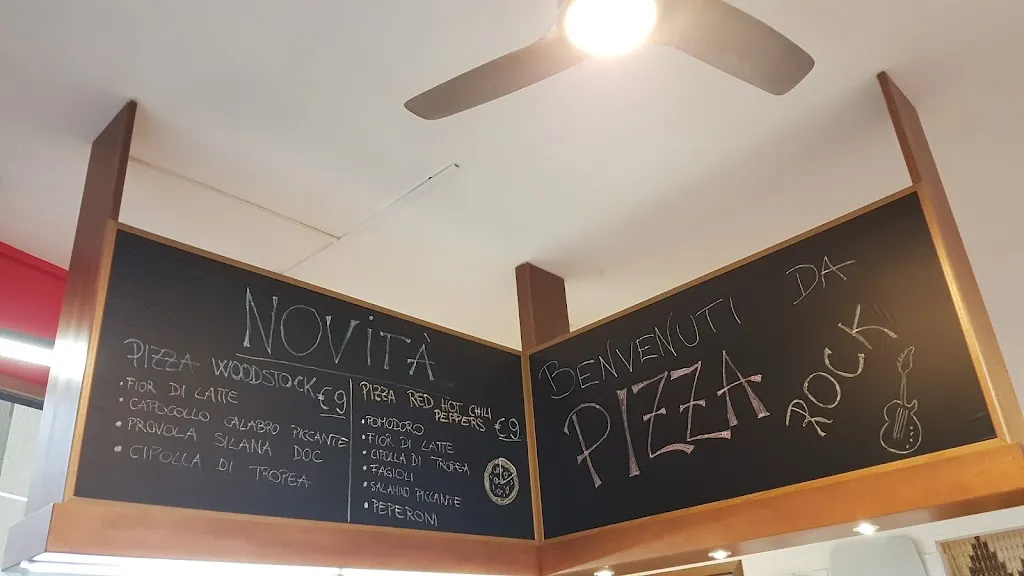 NOVITÀ
PIZZA WOODSTOCK €9
• FIOR DI LATTE
• CAPOCOLLO CALABRO PICCANTE
• PROVOLA SILANA DOC
• CIPOLLA DI TROPEA
PIZZA RED HOT CHILI
PEPPERS €9
• POMODORO
• FIOR DI LATTE
• CIPOLLA DI TROPEA
• FAGIOLI
• SALAMINO PICCANTE
• PEPERONI
BENVENUTI DA
PIZZA ROCK